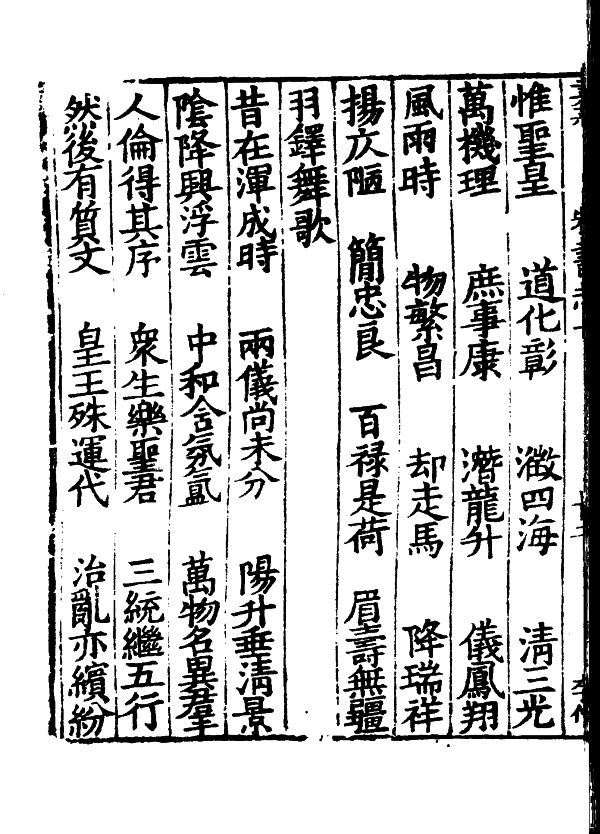 惟聖皇 道化彰 澂四海 淸三光
萬機理 庶事康 潛龍升 儀鳳翔
風雨時 物繁昌 却走馬 降瑞祥
揚仄陋 簡忠良 百禄是荷 眉壽無疆
羽鐸舞歌
昔在渾成時 兩儀尚未分 陽升垂淸景
陰降興浮雲 中和含氛氳 萬物名異羣
人倫得其序 衆生樂聖君 三統繼五行
然後有質文 皇王殊運代 治亂亦繽紛